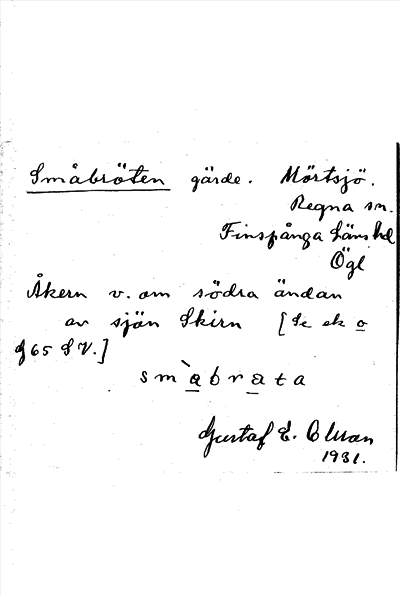 Småbröten gärde. Mörtsjö.
Regna sn.
Finspånga läns hd
Ögl
Åkern v. om södra ändan
av sjön Skirn [Se ek o
f 65 SV.]
smàbrata
Gustaf E. Olsson
1931.